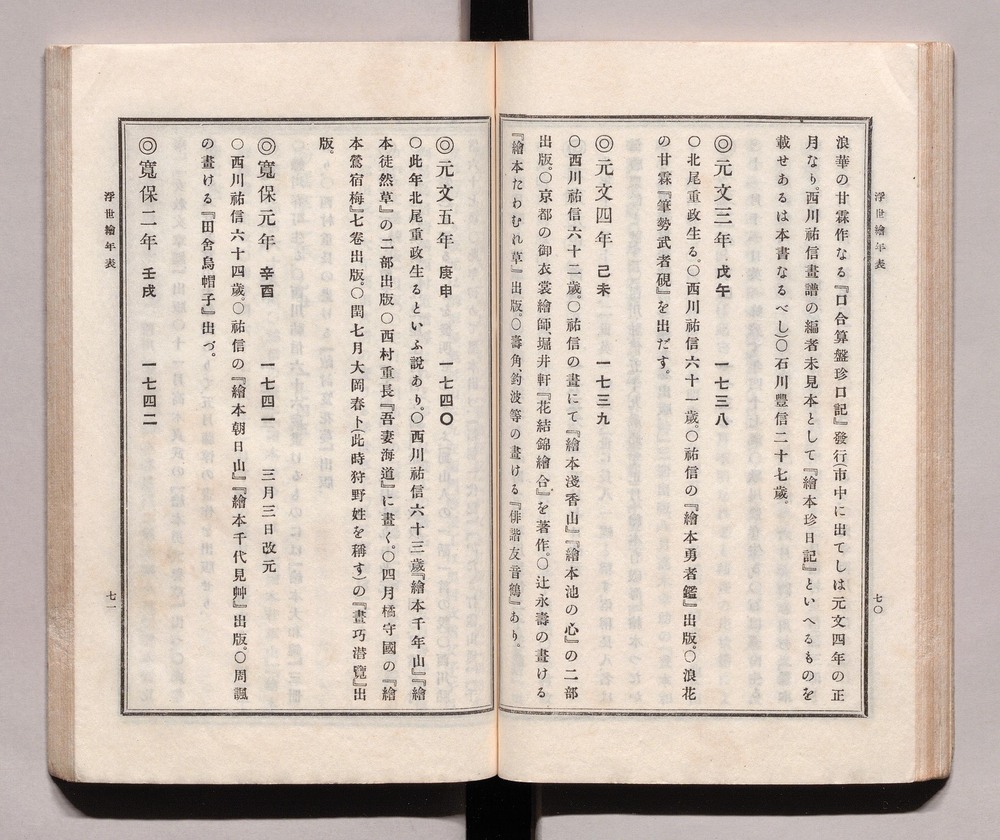 浮世繪年表
七〇
浪華の甘霖作なる『口合算盤珍口記』發行(市中に出てしは元文四年の正
月なり。西川祐信畫譜の編者未見本として『繪本珍日記』といへるものを
載せあるは本書なるべし)〇石川豐信二十七歳。
◎元文三年 戊午 一七三八
〇北尾重政生る。〇西川祐信六十一歳。〇祐信の『繪本勇者鑑』出版。〇浪花
の甘霖『筆勢武者硯』を出だす。
◎元文四年 己未 一七三九
〇西川祐信六十二歳。〇祐信の畫にて『繪本淺香山』『繪本池の心』の二部
出版。〇京都の御衣裳繪師、堀井軒『花結錦繪合』を著作。〇辻永壽の畫ける
『繪本たわむれ草』出版。〇壽角、釣波等の畫ける『俳諧友音鶴』あり。
◎元文五年 庚申 一七四〇
〇此年北尾重政生るといふ説あり。〇西川祐信六十三歳『繪本千年山』『繪
本徒然草』の二部出版〇西村重長『吾妻海道』に畫く。〇四月橘守國の『繪
本鶯宿梅』七卷出版。〇閏七月大岡春卜(此時狩野姓を稱す)の『畫巧潜覽』出
版。
◎寬保元年 辛酉 一七四一 三月三日改元
〇西川祐信六十四歳。〇祐信の『繪本朝日山』『繪本千代見艸』出版。〇周諷
の畫ける『田舍烏帽子』出づ。
◎寬保二年 壬戌 一七四二
浮世繪年表
七一